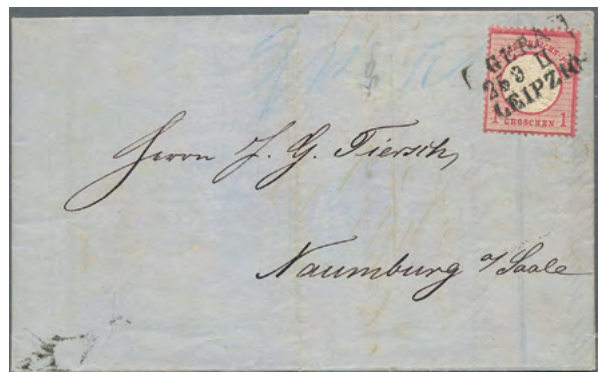 GERA
25 3 II
LEIPZIG
1 GROSCHEN 1
Herrn J. G. Tiersch,
Naumburg a/Saale